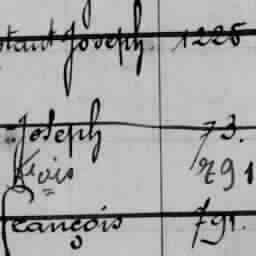 stant Joseph 1225
Joseph 73.
Fçois 791
François 791.